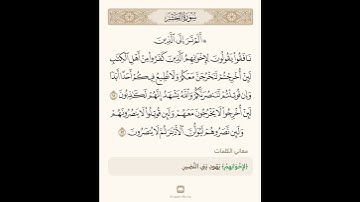 سُورَةُ الحَشْرِ
۞ أَلَمْ تَرَ إِلَى الَّذِينَ
نَافَقُوا يَقُولُونَ لِإِخْوَانِهِمُ الَّذِينَ كَفَرُوا مِنْ أَهْلِ الْكِتَابِ
لَئِنْ أُخْرِجْتُمْ لَنَخْرُجَنَّ مَعَكُمْ وَلَا نُطِيعُ فِيكُمْ أَحَدًا أَبَدًا
وَإِن قُوتِلْتُمْ لَنَنصُرَنَّكُمْ وَاللَّهُ يَشْهَدُ إِنَّهُمْ لَكَاذِبُونَ ١١
لَئِنْ أُخْرِجُوا لَا يَخْرُجُونَ مَعَهُمْ وَلَئِن قُوتِلُوا لَا يَنصُرُونَهُمْ
وَلَئِن نَّصَرُوهُمْ لَيُوَلُّنَّ الْأَدْبَارَ ثُمَّ لَا يُنصَرُونَ ١٢
معاني الكلمات
﴿لِإِخْوَانِهِمُ﴾ يَهُودِ بَنِي النَّضِيرِ